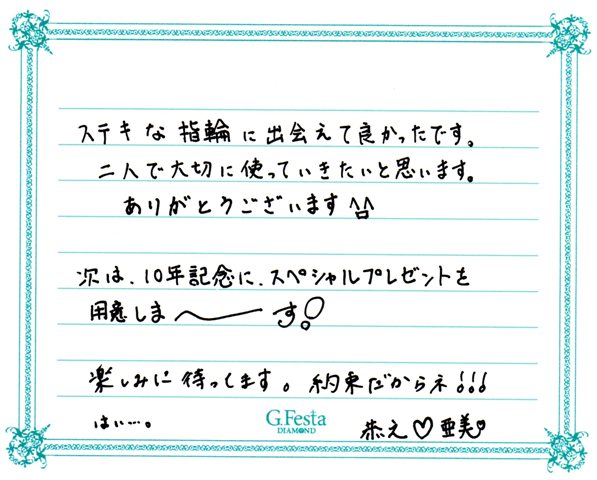 ステキな指輪に出会えて良かったです。
二人で大切に使っていきたいと思います。
ありがとうございます^^
次は、10年記念に、スペシャルプレゼントを
用意しま〜す!
楽しみに待ってます。約束だからネ!!!
はい…。
G.Festa
DIAMOND
♡亜美